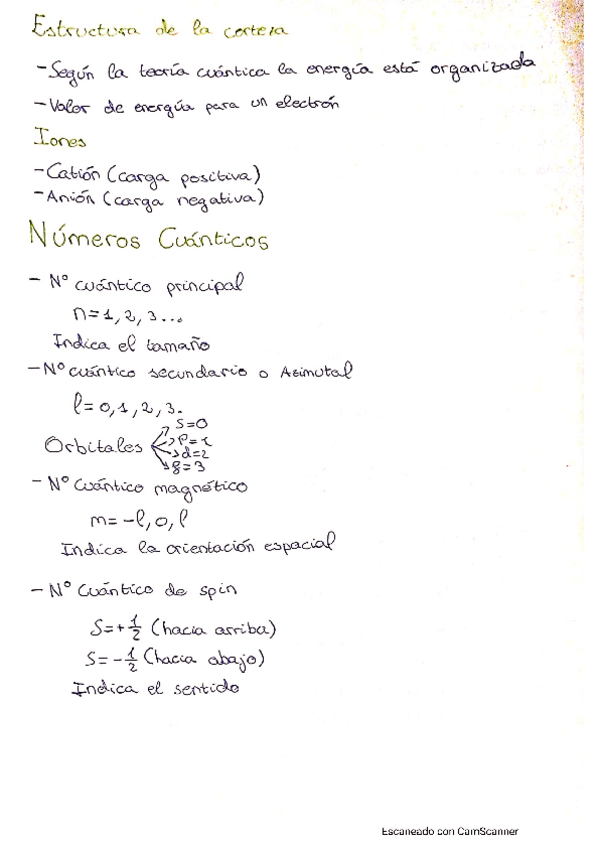 Estructura de la corteza
- Según la teoría cuántica la energía está organizada
- Valor de energía para un electrón
Iones
- Catión (carga positiva)
- Anión (carga negativa)
Números Cuánticos
- Nº cuántico principal
n=1, 2, 3...
Indica el tamaño
- Nº cuántico secundario o Azimutal
l=0, 1, 2, 3.
Orbitales
s=0
p=1
d=2
g=3
- Nº Cuántico magnético
m= -l, 0, l
Indica la orientación espacial
- Nº Cuántico de spin
S=+1/2 (hacia arriba)
S=-1/2 (hacia abajo)
Indica el sentido
Escaneado con CamScanner